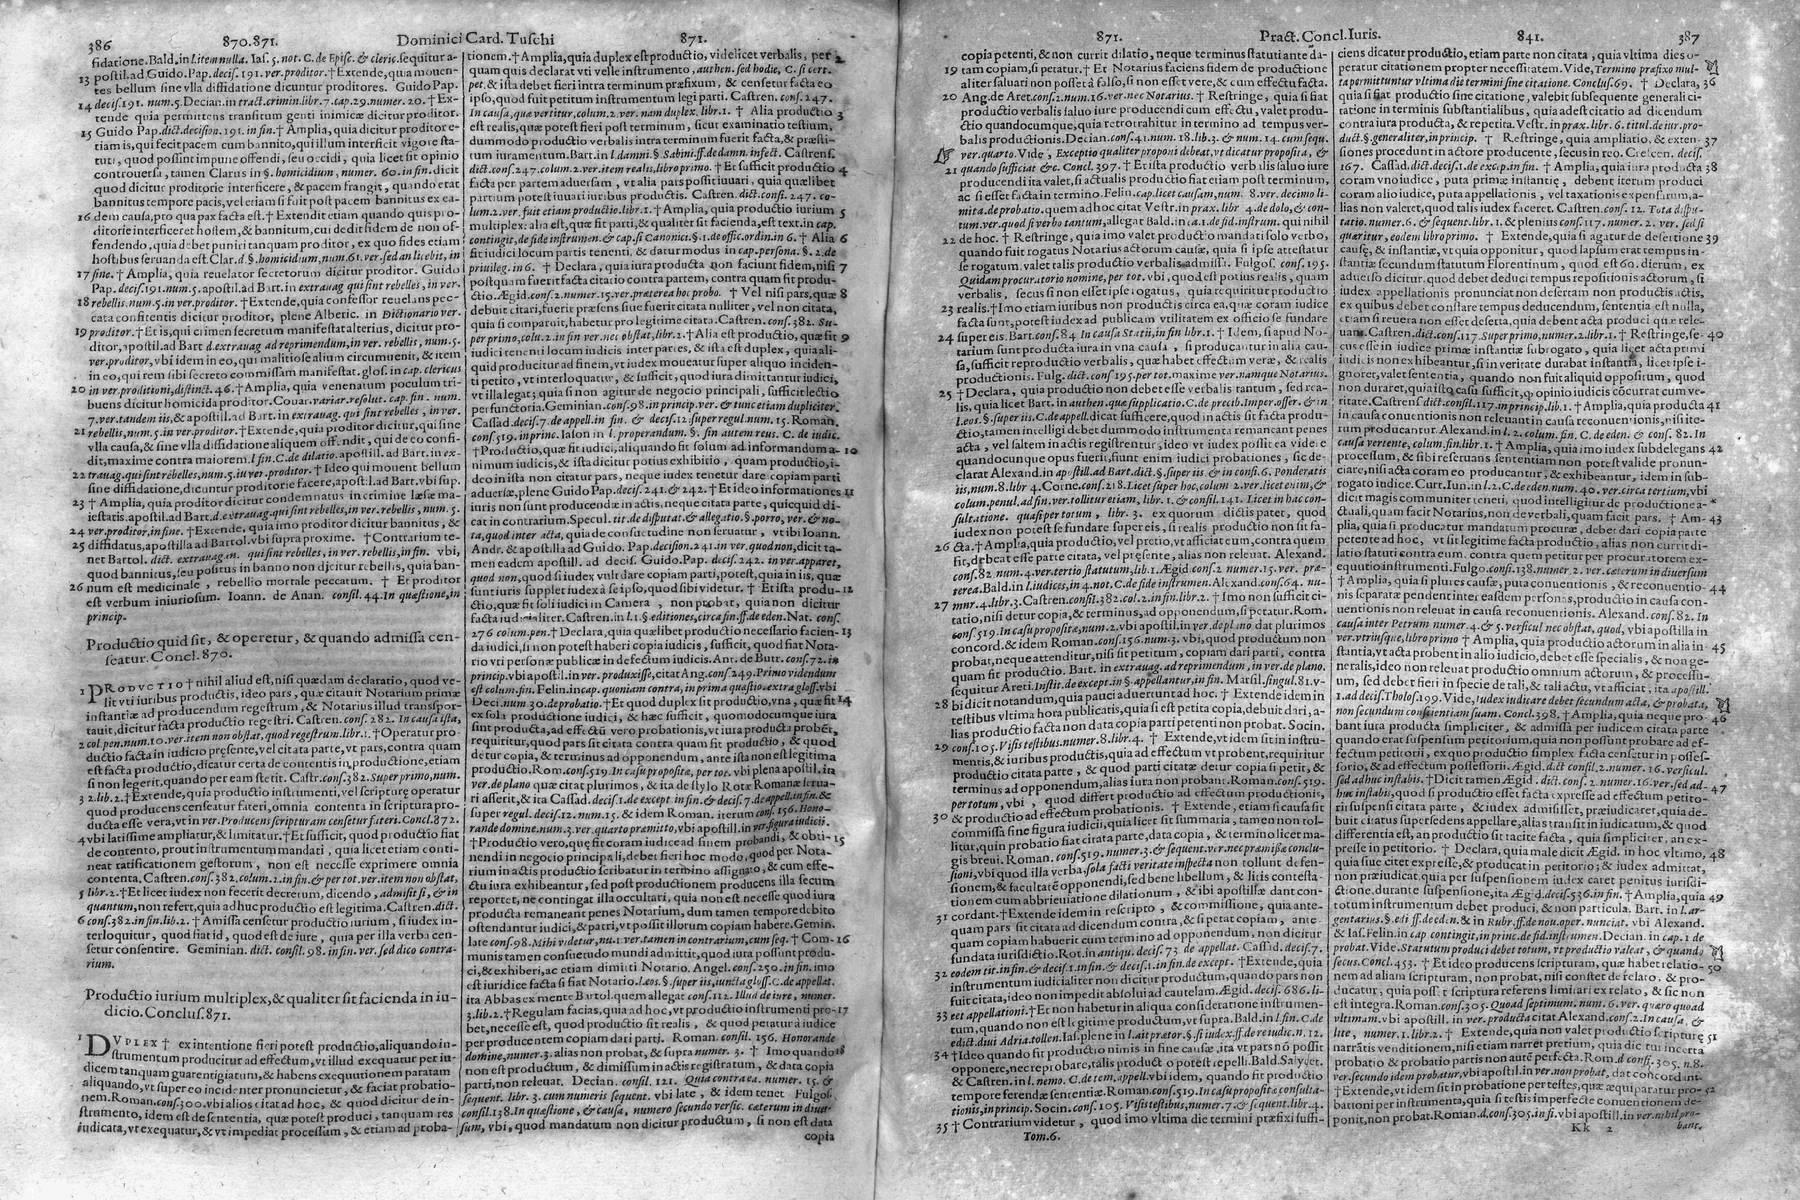 386 870.871. Dominici Card. Tuschi 871.
fidatione. Bald. in l. item nulla. Ias. 5. not. C. de Episc. & cleric. sequitur a-
13 postil. ad Guido. Pap. decis. 191. ver. proditor. † Extende, qua mouen-
tes bellum sine vlla diffidatione dicuntur proditores. Guido Pap.
14 decis. 191. num. 5. Decian. in tract. crimin. libr. 7. cap. 29. numer. 20. † Ex-
tende quia permittens transitum genti inimicæ dicitur proditor.
15 Guido Pap. dict. decision. 191. in fin. † Amplia, quia dicitur proditor e-
tiam is, qui fecit pacem cum bannito, qui illum interficit vigore sta-
tuti, quod possint impune offendi, seu occidi, quia licet sit opinio
controuersa, tamen Clarus in §. homicidium, numer. 60. in fin. dicit
quod dicitur proditorie interficere, & pacem frangit, quando erat
bannitus tempore pacis, vel etiam si fuit post pacem bannitus ex ea-
16 dem causa, pro qua pax facta est. † Extendit etiam quando quis pro-
ditorie interficeret hostem, & bannitum, cui dedit fidem de non of-
fendendo, quia debet puniri tanquam proditor, ex quo fides etiam
hostibus seruanda est. Clar. d. §. homicidium, num. 61. ver. sed an licebit, in
17 fine. † Amplia, quia reuelator secretorum dicitur proditor. Guido
Pap. decis. 191. num. 5. apostil. ad Bart. in extrauag. qui sint rebelles, in ver.
18 rebellis. num. 5. in ver. proditor. † Extende, quia confessor reuelans pec-
cata confitentis dicitur proditor, plene Alberic. in Dictionario ver.
19 proditor. † Et is, qui crimen secretum manifestat alterius, dicitur pro-
ditor, apostil. ad Bart. d. extrauag. ad reprimendum, in ver. rebellis, num. 5.
ver. proditor, vbi idem in eo, qui malitiose alium circumuenit, & item
in eo, qui rem sibi secreto commissam manifestat. glos. in cap. clericus
20 in ver. proditioni, distinct. 46. † Amplia, quia venenatum poculum tri-
buens dicitur homicida proditor. Couar. variar. resolut. cap. fin. num.
7. ver. tandem iis, & apostil. ad Bart. in extrauag. qui sint rebelles, in ver.
21 rebellis, num. 5. in ver. proditor. † Extende, quia proditor dicitur, qui sine
vlla causa, & sine vlla diffidatione aliquem offendit, qui de eo confi-
dit, maxime contra maiorem. l. fin. C. de dilatio. apostil. ad Bart. in ex-
22 trauag. qui sint rebelles, num. 5. in ver. proditor. † Ideo qui mouent bellum
sine diffidatione, dicuntur proditorie facere, apostil. ad Bart. vbi sup.
23 † Amplia, quia proditor dicitur condemnatus in crimine læsæ ma-
iestatis. apostil. ad Bart. d. extrauag. qui sint rebelles, in ver. rebellis, num. 5.
24 ver. proditor, in fine. † Extende, quia imo proditor dicitur bannitus, &
25 diffidatus, apostilla ad Bartol. vbi supra proxime. † Contrarium te-
net Bartol. dict. extrauagan. qui sint rebelles, in ver. rebellis, in fin. vbi,
quod bannitus, seu positus in banno non dicitur rebellis, quia ban-
26 num est medicinale, rebellio mortale peccatum. † Et proditor
est verbum iniuriosum. Ioann. de Anan. consil. 44. In quæstione, in
princip.
Productio quid sit, & operetur, & quando admissa cen-
seatur. Concl. 870.
1 PRODVCTIO † nihil aliud est, nisi quædam declaratio, quod ve-
lit vti iuribus productis, ideo pars, quæ citauit Notarium primæ
instantiæ ad producendum regestrum, & Notarius illud transpor-
tauit, dicitur facta productio regestri. Castren. cons. 282. In causa ista,
2 col. pen. num. 10. ver. item non obstat, quod regestrum. libr. 1. † Operatur pro-
ductio facta in iudicio presente, vel citata parte, vt pars, contra quam
est facta productio, dicatur certa de contentis in productione, etiam
si non legerit, quando per eam stetit. Castr. cons. 382. Super primo, num.
3 2. lib. 2. † Extende, quia productio instrumenti, vel scripturę operatur
quod producens censeatur fateri, omnia contenta in scriptura pro-
ducta esse vera, vt in ver. Producens scripturam censetur fateri. Concl. 872.
4 vbi latissime ampliatur, & limitatur. † Et sufficit, quod productio fiat
de contento, prout instrumentum mandati, quia licet etiam conti-
neat ratificationem gestorum, non est necesse exprimere omnia
contenta. Castren. cons. 382. column. 2. in fin. & per tot. ver. item non obstat,
5 libr. 2. † Et licet iudex non fecerit decretum, dicendo, admisit si, & in
quantum, non refert, quia adhuc productio est legitima. Castren. dict.
6 cons. 382. in fin. lib. 2. † Amissa censetur productio iurium, si iudex in-
terloquitur, quod fiat id, quod est de iure, quia per illa verba cen-
setur consentire. Geminian. dict. consil. 98. in fin. ver. sed dico contra-
rium.
Productio iurium multiplex, & qualiter sit facienda in iu-
dicio. Conclus. 871.
1 DVPLEX † ex intentione fieri potest productio, aliquando in-
strumentum producitur ad effectum, vt illud exequatur per iu-
dicem tanquam guarentigiatum, & habens exequutionem paratam
aliquando, vt super eo incidenter pronuncietur, & faciat probatio-
nem. Roman. cons. 300. vbi alios citat ad hoc, & quod dicitur de in-
strumento, idem est de sententia, quæ potest produci, tanquam res
iudicata, vt exequatur, & vt impediat processum, & etiam ad proba-
tionem. † Amplia, quia duplex est productio, videlicet verbalis, per 2
quam quis declarat vti velle instrumento, authen. sed hodie, C. si cert.
pet. & ista debet fieri intra terminum præfixum, & censetur facta eo
ipso, quod fuit petitum instrumentum legi parti. Castren. cons. 247.
In causa, quæ vertitur, colum. 2. ver. nam duplex. libr. 1. † Alia productio 3
est realis, quæ potest fieri post terminum, sicut examinatio testium,
dummodo productio verbalis intra terminum fuerit facta, & præsti-
tum iuramentum. Bart. in l. damni. §. Sabini. ff. de damn. infect. Castrens.
dict. cons. 247. colum. 2. ver. item realis, libro primo. † Et sufficit productio 4
facta per partem aduersam, vt alia pars possit iuuari, quia quælibet
partium potest iuuari iuribus productis. Castren. dict. cons. 247. co-
lum. 2. ver. fuit etiam productio. libr. 1. † Amplia, quia productio iurium 5
multiplex: alia est, quæ fit parti, & qualiter sit facienda, est text. in cap.
contingit, de fide instrumen. & cap. si Canonici. §. 1. de offic. ordin. in 6. † Alia 6
fit iudici locum partis tenenti, & datur modus in cap. persona. §. 2. de
priuileg. in 6. † Declara, quia iura producta non faciunt fidem, nisi 7
postquam fuerit facta citatio contra partem, contra quam fit produ-
ctio. Ægid. cons. 2. numer. 15. ver. præterea hoc probo. † Vel nisi pars, quæ 8
debuit citari, fuerit præsens siue fuerit citata nulliter, vel non citata,
quia si comparuit, habetur pro legitime citata. Castren. cons. 382. Su-
per primo, colu. 2. in fin. ver. nec obstat, libr. 2. † Alia est productio, quæ fit 9
iudici tenenti locum iudicis inter partes, & ista est duplex, quia ali-
quid producitur ad finem, vt iudex moueatur super aliquo inciden-
ti petito, vt interloquatur, & sufficit, quod iura dimittantur iudici,
vt illa legat; quia si non agitur de negocio principali, sufficit lectio
perfunctoria. Geminian. cons. 98. in princip. ver. & tunc etiam dupliciter.
Cassad. decis. 7. de appell. in fin. & decis. 12. super regul. num. 15. Roman.
cons. 519. in princ. Iason in l. properandum. §. fin autem reus. C. de iudic.
† Productio, quæ fit iudici, aliquando fit solum ad informandum a- 10
nimum iudicis, & ista dicitur potius exhibitio, quam productio, i-
deo in ista non citatur pars, neque iudex tenetur dare copiam parti
aduersæ, plene Guido Pap. decis. 241. & 242. † Et ideo informationes 11
iuris non sunt producendæ in actis, neque citata parte, quicquid di-
cat in contrarium. Specul. tit. de disputat. & allegatio. §. porro, ver. & no-
ta, quod inter acta, quia de consuetudine non seruatur, vt ibi Ioann.
Andr. & apostilla ad Guido. Pap. decision. 241. in ver. quod non, dicit ta-
men eadem apostill. ad decis. Guido. Pap. decis. 242. in ver. apparet,
quod non, quod si iudex vult dare copiam parti, potest, quia in iis, quæ
sunt iuris supplet iudex à se ipso, quod sibi videtur. † Et ista produ- 12
ctio, quæ fit soli iudici in Camera, non probat, quia non dicitur
facta iudicialiter. Castren. in l. 1. §. editiones, circa fin. ff. de eden. Nat. cons.
276 colum. pen. † Declara, quia quælibet productio necessario facien- 13
da iudici, si non potest haberi copia iudicis, sufficit, quod fiat Nota-
rio vti personæ publicæ in defectum iudicis. Ant. de Butt. cons. 72. in
princip. vbi apostil. in ver. produxisse, citat Ang. cons. 249. Primo videndum
est colum. fin. Felin. in cap. quoniam contra, in prima quæstio. extra gloss. vbi
Deci. num. 30. de probatio. † Et quod duplex sit productio, vna, quæ fit 14
ex sola productione iudici, & hæc sufficit, quomodocumque iura
sint producta, ad effectū vero probationis, vt iura producta probēt,
requiritur, quod pars sit citata contra quam fit productio, & quod
detur copia, & terminus ad opponendum, ante ista non est legitima
productio. Rom. cons. 519. In casu proposito, per tot. vbi plena apostil. ita
ver. de plano quæ citat plurimos, & ita de stylo Rotæ Romanæ serua-
ri asserit, & ita Cassad. decis. 1. de except. in fin. & decis. 7. de appell. in fin. &
super regul. decis. 12. num. 15. & idem Roman. iterum cons. 156. Hono-
rande domine. num. 3. ver. quarto præmitto, vbi apostill. in ver. figura iudicii.
† Productio vero, quę fit coram iudice ad finem probandi, & obti- 15
nendi in negocio principali, debet fieri hoc modo, quod per Nota-
rium in actis productio scribatur in termino assignato, & cum effe-
ctu iura exhibeantur, sed post productionem producens illa secum
reportet, ne contingat illa occultari, quia non est necesse quod iura
producta remaneant penes Notarium, dum tamen tempore debito
ostendantur iudici, & parti, vt possit illorum copiam habere. Gemin.
late cons. 98. Mihi videtur, nu. 1. ver. tamen in contrarium, cum seq. † Com- 16
munis tamen consuetudo mundi admittit, quod iura possunt produ-
ci, & exhiberi, ac etiam dimitti Notario. Angel. cons. 250. in fin. imo
est iuridice facta si fiat Notario. l. eos. §. super iis, iuncta gloss. C. de appellat.
ita Abbas ex mente Bartol. quem allegat cons. 112. Illud de iure, numer.
3. lib. 2. † Regulam facias, quia ad hoc, vt productio instrumenti pro- 17
bet, necesse est, quod productio sit realis, & quod petatur à iudice
per producentem copiam dari parti. Roman. cons. 156. Honorande
domine, numer. 3. alias non probat, & supra numer. 3. † Imo quando 18
non est productum, & dimissum in actis registratum, & data copia
parti, non releuat. Decian. consil. 121. Quia contra ea. numer. 15. &
sequent. libr. 3. cum numeris sequent. vbi late, & idem tenet Fulgos.
consil. 138. In quæstione, & causa, numero secundo versic. cæterum in diuer-
sum, vbi, quod mandatum non dicitur productum, si non est data
copia
871. Pract. Concl. Iuris. 841. 387
copia petenti, & non currit dilatio, neque terminus statuti ante da-
19 tam copiam, si petatur. † Et Notarius faciens fidem de productione
aliter saluari non posset à falso, si non esset vete, & cum effectu facta.
20 Ang. de Aret. cons. 2. num. 16. ver. nec Notarius. † Restringe, quia si fiat
productio verbalis saluo iure producendi cum effectu, valet produ-
ctio quandocumque, quia retrotrahitur in termino ad tempus ver-
balis productionis. Decian. cons. 41. num. 18. lib. 3. & num. 14. cum sequ.
ver. quarto. Vide, Exceptio qualiter proponi debeat, vt dicatur proposita, &
21 quando sufficiat &c. Concl. 397. † Et ista productio verbalis saluo iure
producendi ita valet, si actualis productio fiat etiam post terminum,
ac si esset facta in termino. Felin. cap. licet causam, num. 8. ver. decimo li-
mita. de probatio. quem ad hoc citat Vestr. in prax. libr. 4. de dolo, & con-
tum. ver. quod si verbo tantum, allegat Bald. in l. 2. C. de fid. instrum. qui nihil
22 de hoc. † Restringe, quia imo valet productio mandati solo verbo,
quando fuit rogatus Notarius actorum causæ, quia si ipse attestatur
se rogatum. valet talis productio verbalis admissa. Fulgos. cons. 195.
Quidam procuratorio nomine, per tot. vbi, quod est potius realis, quam
verbalis, secus si non esset ipse rogatus, quia requiritur productio
23 realis. † Imo etiam iuribus non productis circa ea, quæ coram iudice
facta sunt, potest iudex ad publicam vtilitatem ex officio se fundare
24 super eis. Bart. cons. 84. In causa Statii, in fin. libr. 1. † Idem, si apud No-
tarium sunt producta iura in vna causa, si producantur in alia cau-
sa, sufficit reproductio verbalis, quæ habet effectum veræ, & realis
productionis. Fulg. dict. cons. 195. per tot. maxime ver. namque Notarius.
25 † Declara, quia productio non debet esse verbalis tantum, sed rea-
lis, quia licet Bart. in authen. quæ supplicatio. C. de precib. Imper. offer. & in
l. eos. §. super iis. C. de appell. dicat sufficere, quod in actis sit facta produ-
ctio, tamen intelligi debet dummodo instrumenta remaneant penes
acta, vel saltem in actis registrentur, ideo vt iudex possit ea videre
quandocunque opus fuerit, fiunt enim iudici probationes, sic de-
clarat Alexand. in apostill. ad Bart. dict. §. super iis & in cons. 6. Ponderatis
iis, num. 8. libr. 4. Corne. cons. 218. Licet super hoc, colum. 2. ver. licet enim, &
colum. penul. ad fin. ver. tollitur etiam, libr. 1. & consil. 141. Licet in hac con-
sultatione. quasi per totum, libr. 3. ex quorum dictis patet, quod
iudex non potest se fundare super eis, si realis productio non sit fa-
26 cta. † Amplia, quia productio, vel pretio, vt afficiat eum, contra quem
fit, dębet esse parte citata, vel pręsente, alias non releuat. Alexand.
cons. 82. num. 4. ver. tertio statutum, lib. 1. Ægid. cons. 2. numer. 15. ver. præ-
terea. Bald. in l. iudices, in 4. not. C. de fide instrumen. Alexand. cons. 64. nu-
27 mer. 4. libr. 3. Castren. cons. 382. col. 2. in fin. libr. 2. † Imo non sufficit ci-
tatio, nisi detur copia, & terminus, ad opponendum, si petatur. Rom.
cons. 519. In casu proposito, num. 2. vbi apostil. in ver. de plano dat plurimos
concord. & idem Roman. cons. 156. num. 3. vbi, quod productum non
probat, neque attenditur, nisi sit petitum, copiam dari parti, contra
quam fit productio. Bart. in extrauag. ad reprimendum, in ver. de plano.
sequitur Areti. Instit. de except. in §. appellantur, in fin. Marsil. singul. 81. v-
28 bi dicit notandum, quia pauci aduertunt ad hoc. † Extende idem in
testibus vltima hora publicatis, quia si est petita copia, debuit dari, a-
lias productio facta non data copia parti petenti non probat. Socin.
29 cons. 105. Visis testibus. numer. 8. libr. 4. † Extende, vt idem sit in instru-
mentis, & iuribus productis, quia ad effectum vt probent, requiritur
productio citata parte, & quod parti citatæ detur copia si petit, &
terminus ad opponendum, alias iura non probant. Roman. cons. 519.
per totum, vbi, quod differt productio ad effectum iudicandi,
30 & productio ad effectum probationis. † Extende, etiam si causa sit
commissa sine figura iudicii, quia licet sit summaria, tamen non tol-
litur, quin probatio fiat citata parte, data copia, & termino licet ma-
gis breui. Roman. cons. 519. numer. 3. & sequent. ver. nec præmissæ conclu-
sioni, vbi quod illa verba, sola facti veritate inspecta non tollunt defen-
sionem, & facultatē opponendi, sed bene libellum, & litis contesta-
tionem cum abbrieuiatione dilationum, & ibi apostillæ dant con-
31 cordant. † Extende idem in rescripto, & commissione, quia ante-
quam pars sit citata ad dicendum contra, & si petat copiam, ante
quam copiam habuerit cum termino ad opponendum, non dicitur
fundata iurisdictio. Rot. in antiqu. decis. 73. de appellat. Cassad. decis. 7.
32 eodem tit. in fin. & decis. 1. in fin. & decis. 1. in fin. de except. † Extende, quia
instrumentum iudicialiter non dicitur productum, quando pars non
fuit citata, ideo non impedit absolui ad cautelam. Ægid. decis. 686. li-
33 cet appellationi. † Et non habetur in aliqua consideratione instrumen-
tum, quando non est legitime productum, vt supra. Bald. in l. fin. C. de
edict. diui Adria. tollen. Ias. plene in l. ait prætor. §. si iudex. ff. de reiudic. n. 12.
34 † Ideo quando fit productio nimis in fine causæ, ita vt pars nō possit
opponere, nec reprobare, talis productio potest repelli. Bald. Salycet.
& Castren. in l. nemo. C. de tem. appell. vbi idem, quando fit productio
tempore ferendæ sententiæ. Roman. cons. 519. In casu proposito & consulta-
tionis, in princip. Socin. cons. 105. Visis testibus, numer. 7. & sequent. libr. 4.
35 † Contrarium videtur, quod imo vltima die termini præfixi suffi-
Tom. 6.
ciens dicatur productio, etiam parte non citata, quia vltima dies o-
peratur citationem propter necessitatem. Vide, Termino præfixo mul-
ta permittuntur vltima die termini sine citatione. Conclus. 69. † Declara, 36
quia si fiat productio sine citatione, valebit subsequente generali ci-
tatione in terminis substantialibus, quia adest citatio ad dicendum
contra iura producta, & repetita. Vestr. in prax. libr. 6. titul. de iur. pro-
duct. §. generaliter, in princip. † Restringe, quia ampliatio, & exten- 37
siones procedunt in actore producente, secus in reo. Crescen. decis.
167. Cassad. dict. decis. 1. de except. in fin. † Amplia, quia iura producta 38
coram vno iudice, puta primæ instantiæ, debent iterum produci
coram alio iudice, puta appellationis, vel taxationis expensarum, a-
lias non valeret, quod talis iudex faceret. Castren. cons. 12. Tota dispu-
tatio. numer. 6. & sequent. libr. 1. & plenius cons. 117. numer. 2. ver. sed si
quæritur, eodem libro primo. † Extende, quia si agatur de desertione 39
causę, & instantiæ, vt quia opponitur, quod lapsum erat tempus in-
stantiæ secundum statutum Florentinum, quod est 60. dierum, ex
aduerso dicitur. quod debet deduci tempus repositionis actorum, si
iudex appellationis pronunciat non desertam non productis actis,
ex quibus debet constare tempus deducendum, sententia est nulla,
etiam si reuera non esset deserta, quia debent acta produci quæ rele-
uant. Castren. dict. cons. 117. Super primo, numer. 2. libr. 1. † Restringe, se- 40
cus esse in iudice primæ instantiæ subrogato, quia licet acta primi
iudicis non exhibeantur, si in veritate durabat instantia, licet ipse i-
gnoret, valet sententia, quando non fuit aliquid oppositum, quod
non duraret, quia isto casu sufficit, ꝙ opinio iudicis cōcurrat cum ve-
ritate. Castrens. dict. consil. 117. in princip. lib. 1. † Amplia, quia producta 41
in causa conuentionis non releuant in causa reconuentionis, nisi ite-
rum producantur. Alexand. in l. 2. colum. fin. C. de eden. & cons. 82. In
causa vertente, colum. fin. libr. 1. † Amplia, quia imo iudex subdelegans 42
processum, & sibi reseruans sententiam non potest valide pronun-
ciare, nisi acta coram eo producantur, & exhibeantur, idem in sub-
rogato iudice. Curt. Iun. in l. 2. C. de eden. num. 40. ver. circa tertium, vbi
dicit magis communiter teneri, quod intelligitur de productione a-
ctuali, quam facit Notarius, non de verbali, quam facit pars. † Am- 43
plia, quia si producatur mandatum procuræ, debet dari copia parte
petente ad hoc, vt sit legitime facta productio, alias non currit di-
latio statuti contra eum, contra quem petitur per procuratorem ex-
equutio instrumenti. Fulgo. cons. 138. numer. 2. ver. cæterum in diuersum
† Amplia, quia si plures causæ, puta conuentionis, & reconuentio- 44
nis separatæ pendent inter easdem personas, productio in causa con-
uentionis non releuat in causa reconuentionis. Alexand. cons. 82. In
causa inter Petrum numer. 4. & 5. versicul. nec obstat, quod, vbi apostilla in
ver. vtriusque, libro primo † Amplia, quia productio actorum in alia in- 45
stantia, vt acta probent in alio iudicio, debet esse specialis, & non ge-
neralis, ideo non releuat productio omnium actorum, & processu-
um, sed debet fieri in specie de tali, & tali actu, vt afficiat, ita apostill.
1. ad decis. Tholos. 199. Vide, Iudex iudicare debet secundum acta, & probata,
non secundum conscientiam suam. Concl. 398. † Amplia, quia neque pro- 46
bant iura producta simpliciter, & admissa per iudicem citata parte
quando erat suspensum petitorium. quia non possunt probare ad ef-
fectum petitorii, ex quo productio simplex facta censetur in posses-
sorio, & ad effectum possessorii. Æ gid. dict. consil. 2. numer. 16. versicul.
sed adhuc instabis. † Dicit tamen Ægid. dict. cons. 2. numer. 16. ver. sed ad- 47
huc instabis, quod si productio esset facta expresse ad effectum petito-
rii suspensi citata parte, & iudex admisisset, præiudicaret, quia de-
buit citatus supersedens appellare, alias transit in iudicatum, & quod
differentia est, an productio sit tacite facta, quia simpliciter, an ex-
presse in petitorio. † Declara, quia male dicit Ægid. in hoc vltimo, 48
quia siue citet expresse, & producat in petitorio; & iudex admittat,
non præiudicat, quia per suspensionem iudex caret penitus iurisdi-
ctione, durante suspensione, ita Ægid. decis. 536. in fin. † Amplia, quia 49
totum instrumentum debet produci, & non particula. Bart. in l. ar-
gentarius. §. edi. ff. de eden. & in Rubr. ff. de non. oper. nunciat. vbi Alexand.
& Ias. Felin. in cap. contingit, in princ. de fid. instrumen. Decian. in cap. 1. de
probat. Vide. Statutum produci debet totum, vt productio valeat, & quando
secus. Concl. 453. † Et ideo producens scripturam, quæ habet relatio- 50
nem ad aliam scripturam, non probat, nisi constet de relato, & pro-
ducatur, quia posset scriptura referens limitari ex relato, & sic non
est integra. Roman. cons. 305. Quoad septimum. num. 6. ver. quæro quo ad
vltimam. vbi apostill. in ver. producta citat Alexand. cons. 2. In causa, &
lite, numer. 1. libr. 2. † Extende, quia non valet productio scripturę 51
narrātis venditionem, nisi etiam narret pretium, quia dicitur incerta
probatio & probatio partis non autē perfecta. Rom. d. cons. 305. n. 8.
ver. secundo idem probatur, vbi apostil. in ver. non probat, dat concordant.
† Extende, vt idem sit in probatione per testes, quæ æquiparatur pro- 52
bationi per instrumenta, quia si testis imperfecte conuentionem de-
ponit, non probat. Roman. d. cons. 305. in fi. vbi apostill. in ver. nihil pro-
Kk 2 bant.